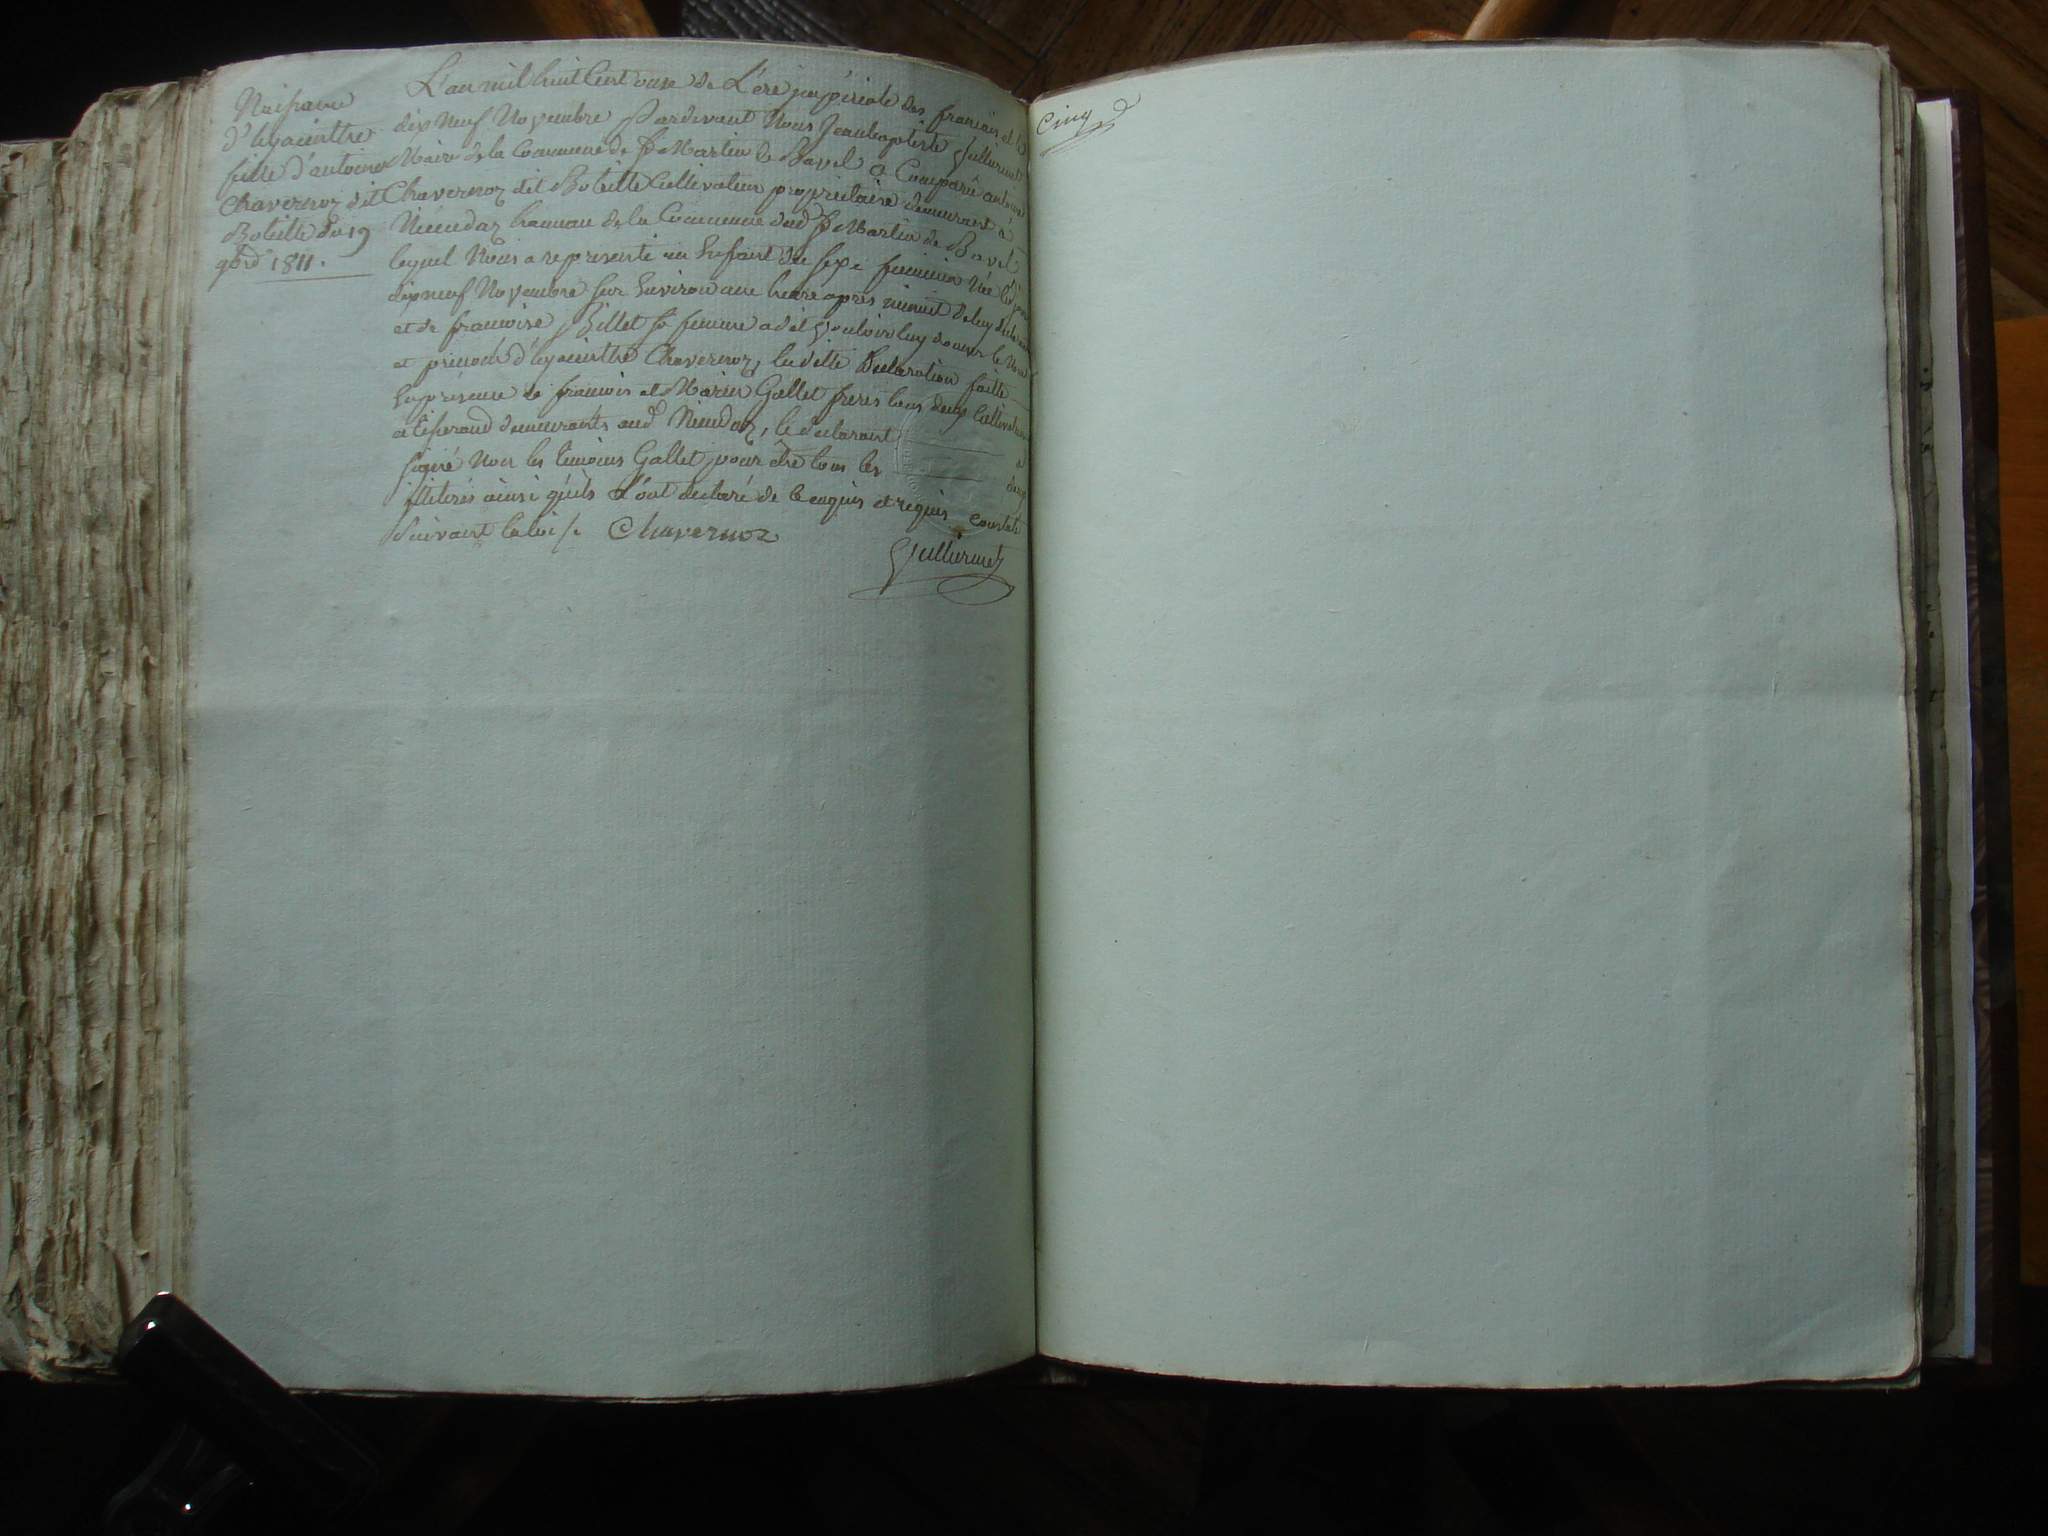 Naissance
d'hyacinthe
fille d'antoine
Chavernoz dit
Boteille du 19
9bre 1811.
L'an mil huit Cent onze de L'ère impériale des francais et le
dix Neuf Novembre Pardevant Nous Jeanbaptiste Guillermet
Maire de la Commune de St Martin de Bavel a Comparû antoine
Chavernoz dit Boteille Cultivateur propriétaire demeurant à
hameau de la Commune dud St Martin de Bavel
lequel Nous a représenté un Enfant du sexe feminin Née le
dix neuf Novembre sur Environ une heure après minuit de luy déclarant
et de francoise Billet sa femme a dit Vouloir luy donner le Nom
et prenom d'hyacinthe Chavernoz, la ditte Declaration faitte
En présence de francois et Marin Gallet freres tous deux Cultivateurs
demeurants aud le déclarant a
signé Non les temoins Gallet pour être tous les deux
illiterés ainsi qu'ils L'ont declaré de ce enquis et requis constaté
Suivant la loi /. Chavernoz
Guillermet
Cinq